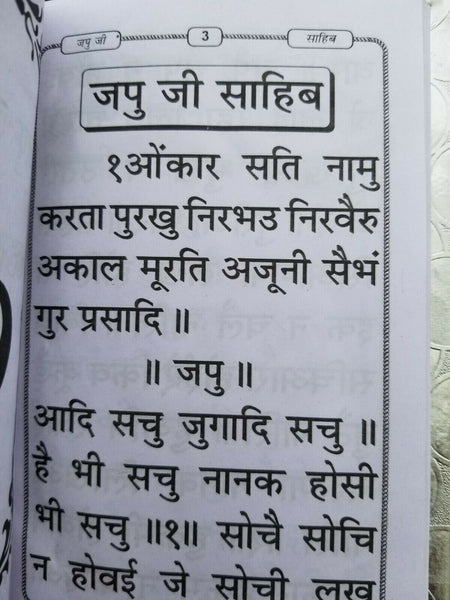 जपु जी
3
साहिब
जपु जी साहिब
१ओंकार सति नामु
करता पुरखु निरभउ निरवैरु
अकाल मूरति अजूनी सैभं
गुर प्रसादि ॥
॥ जपु ॥
आदि सचु जुगादि सचु ॥
है भी सचु नानक होसी
भी सचु ॥१॥ सोचै सोचि
न होवई जे सोची लख